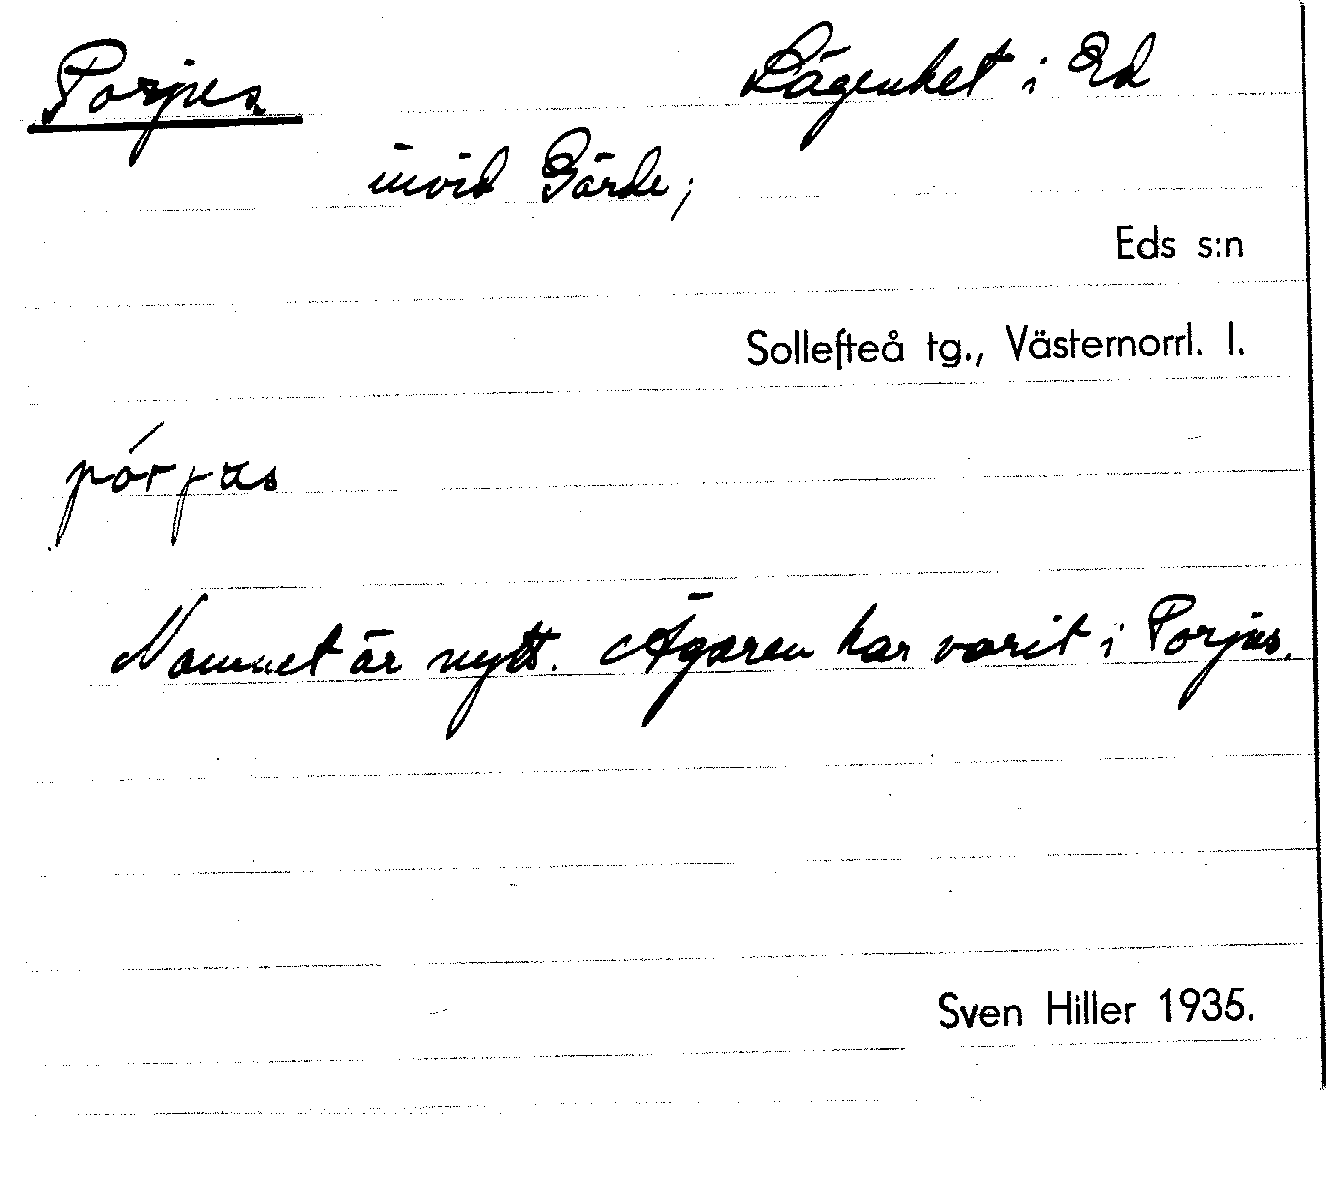 Porjus Lägenhet i Ed
invid Gärde;
Eds s:n
Sollefteå tg., Västernorrl. l.
pórjus
Namnet är nytt. Ägaren har varit i Porjus.
Sven Hiller 1935.